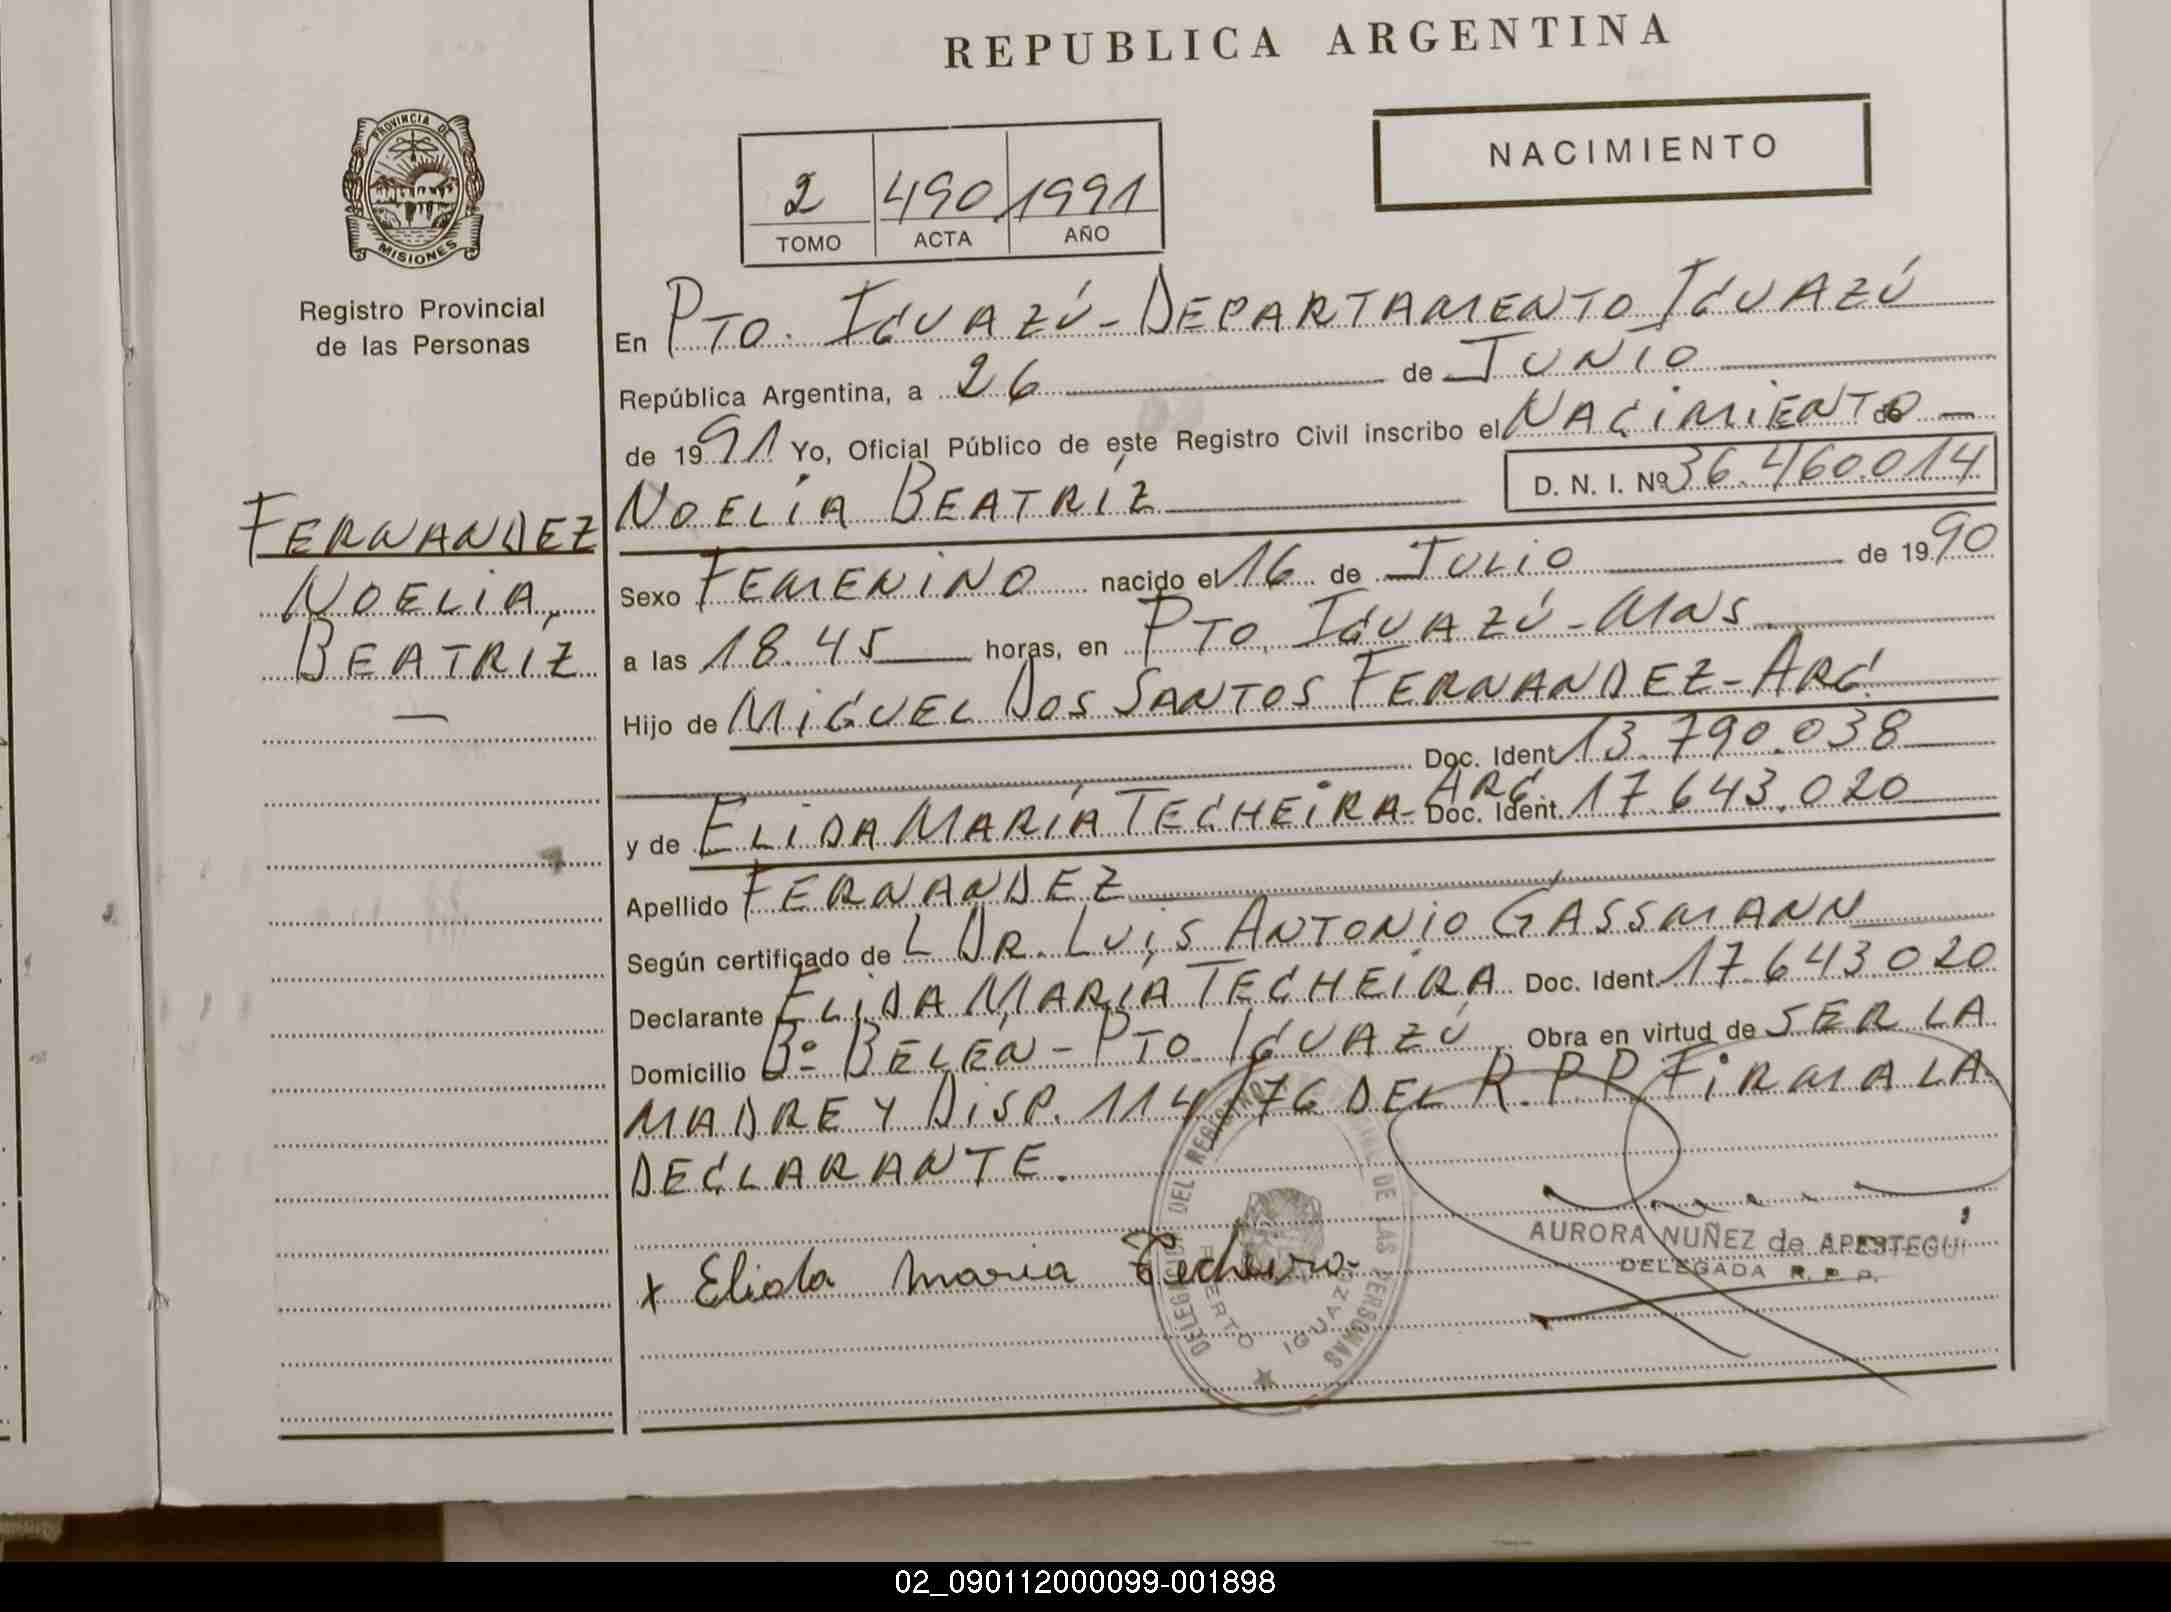 REPUBLICA ARGENTINA
PROVINCIA DE
MISIONES
Registro Provincial
de las Personas
NACIMIENTO
2 490 1991
TOMO ACTA AÑO
En PTO. IGUAZÚ - DEPARTAMENTO IGUAZÚ
República Argentina, a 26 de JUNIO
de 1991 Yo, Oficial Público de este Registro Civil inscribo el NACIMIENTO de
NOELIA BEATRÍZ D. N. I. Nº 36.460.014
FERNANDEZ
NOELIA,
BEATRÍZ
Sexo FEMENINO nacido el 16 de JULIO de 1990
a las 18.45 horas, en PTO. IGUAZÚ - MNS
Hijo de MIGUEL DOS SANTOS FERNANDEZ - ARG.
Doc. Ident. 13.790.038
y de ELIDA MARÍA TECHEIRA - ARG. Doc. Ident. 17.643.020
Apellido FERNANDEZ
Según certificado de L DR. LUIS ANTONIO GASSMANN
Declarante ELIDA MARÍA TECHEIRA Doc. Ident. 17.643.020
Domicilio Bº BELÉN - PTO. IGUAZÚ Obra en virtud de SER LA
MADRE Y DISP. 114/76 DEL R.P.P. FIRMA LA
DECLARANTE.
x Elida maria Techeira
DELEGACION DEL REGISTRO PROVINCIAL DE LAS PERSONAS
PUERTO IGUAZU
AURORA NUÑEZ de APESTEGUI
DELEGADA R. P. P.
02_090112000099-001898